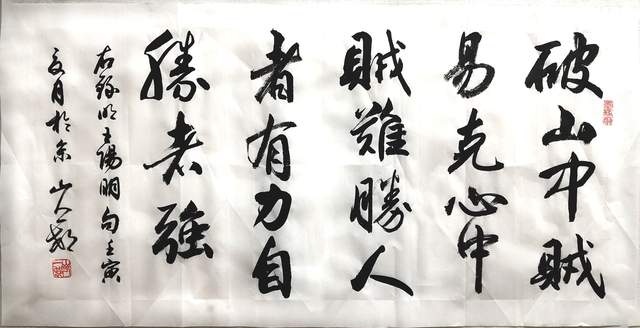 破山中賊
易克心中
賊難勝人
者有力自
勝者強
右錄明王陽明句壬寅
夏月於京山人